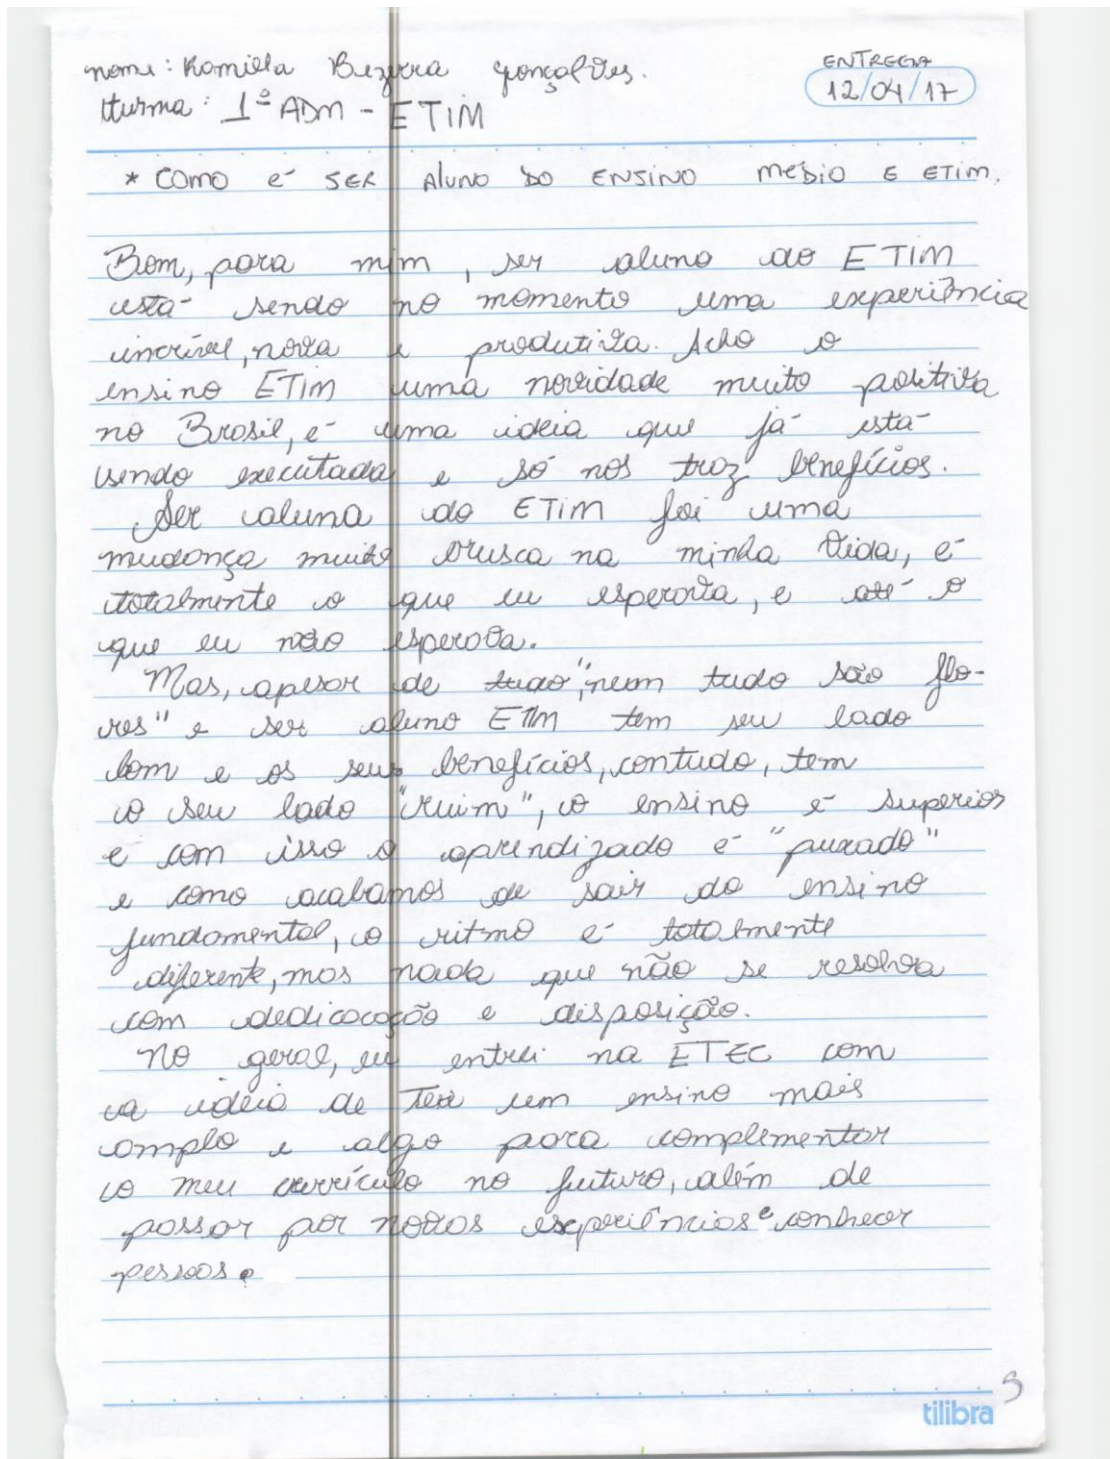 nome: Kamilla Bezerra Gonçalves.
ENTREGA
12/04/17
turma: 1º ADM - ETIM
* COMO é SER AlUNO DO ENSINO MÉDIO E ETIM.
Bom, para mim, ser aluno do ETIM
está sendo no momento uma experiência
incrível, nova e produtiva. Acho o
ensino ETIM uma novidade muito positiva
no Brasil, é uma ideia que já está
sendo executada e só nos traz benefícios.
Ser aluna do ETIM foi uma
mudança muito brusca na minha vida, é
totalmente o que eu esperava, e até o
que eu não esperava.
Mas, apesar de tudo, "nem tudo são flo-
res" e ser aluno ETIM tem seu lado
bom e os seus benefícios, contudo, tem
o seu lado "ruim", o ensino é superior
e com isso o aprendizado é "puxado"
e como acabamos de sair do ensino
fundamental, o ritmo é totalmente
diferente, mas nada que não se resolva
com dedicacação e disposição.
No geral, eu entrei na ETEC com
a ideia de ter um ensino mais
amplo e algo para complementar
o meu currículo no futuro, além de
passar por novas experiências e conhecer
pessoas.
tilibra